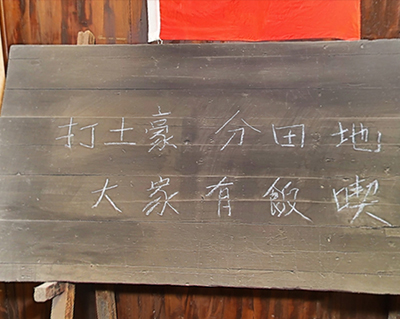 打土豪 分田地
大家有飯喫